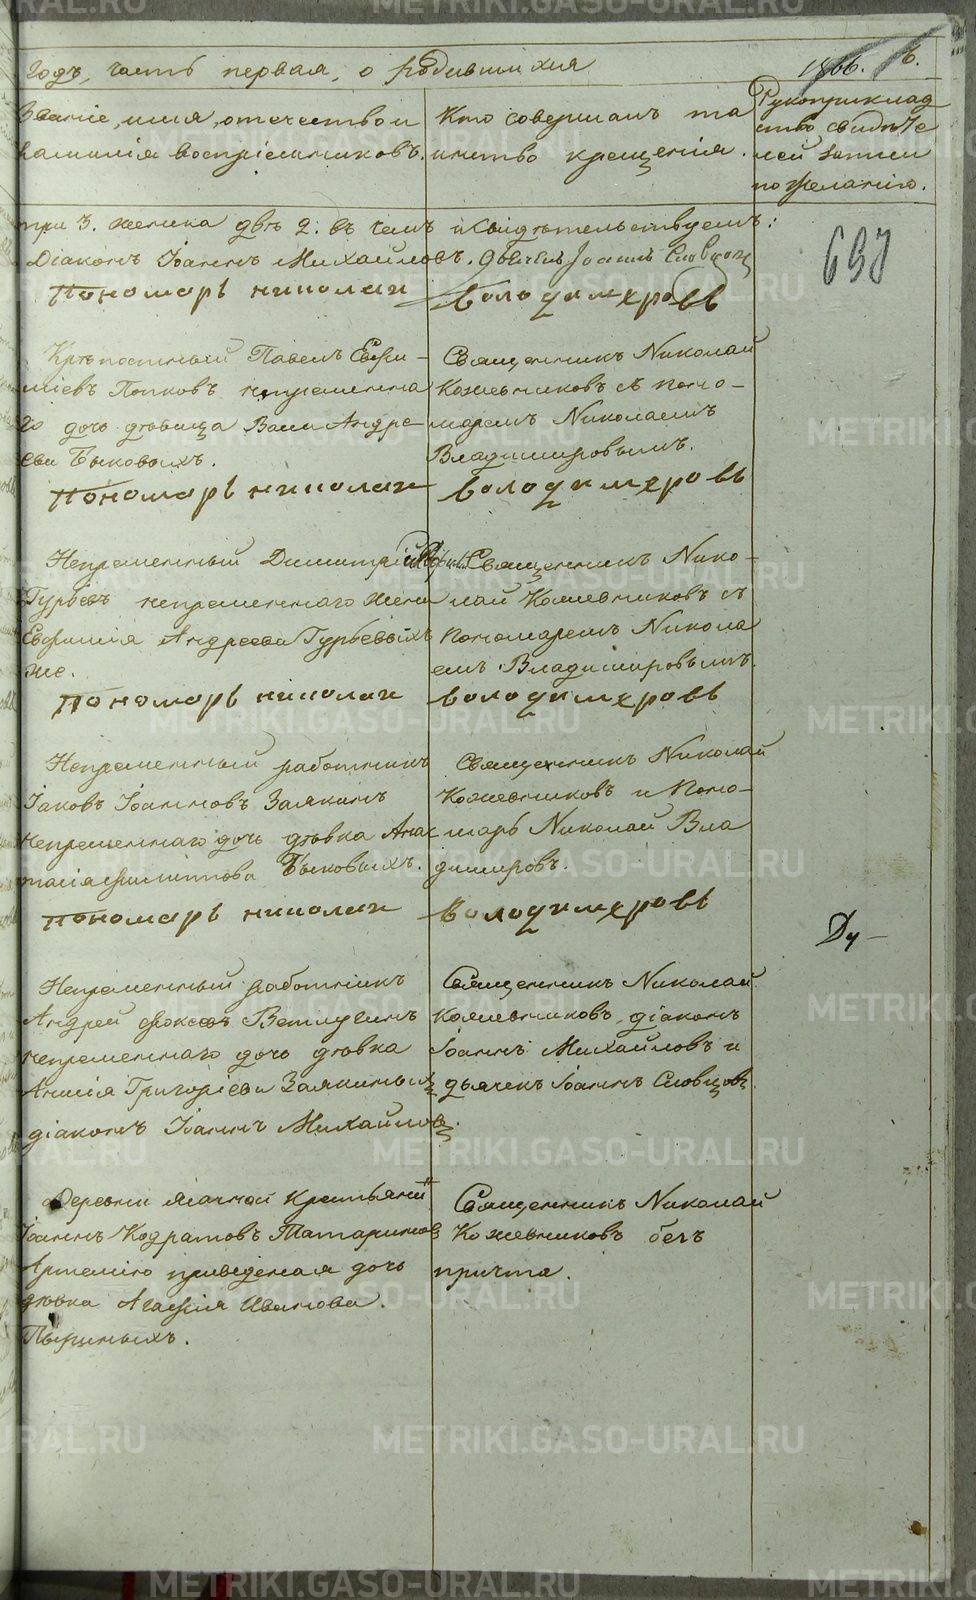 METRIKI.GASO-URAL.RU
годъ, часть первая, о родившихся
6.
Званіе, имя, отечество и
фамилія воспріемниковъ.
Кто совершалъ та
инство крещенія.
Рукоприклад
ство свидѣте
лей записи
по желанію.
три 3. женска двѣ 2. въ чемъ и свидѣтельствуемъ:
Діаконъ Іоаннъ Михайловъ. Дьячекъ Іоаннъ Словцовъ
Пономарь николаи володимеровъ
Крѣпостный Павелъ Ефи-
міевъ Попковъ непременна
го дочь дѣвица Андре-
ева Быковыхъ.
Священникъ Николай
Кожевниковъ съ поно-
маремъ Николаемъ
Владимировымъ.
Пономарь николаи володимеровъ
Непременный Димитрій
Гурьевъ непременнаго жена
Евфимія Андреева Гурьевыхъ
же.
Священникъ Нико-
лай Кожевниковъ съ
пономаремъ Никола
емъ Владимировымъ.
Пономарь николаи володимеровъ
Непременный работникъ
Іаковъ Іоанновъ Залякинъ
непременнаго дочь дѣвка Анас
тасія Филиппова Быковыхъ.
Священникъ Николай
Кожевниковъ и Поно-
марь Николай Вла
димировъ.
Пономарь николаи володимеровъ
Непременный работникъ
Андрей Фокеевъ Ветлугинъ
непременнаго дочь дѣвка
Анисія Григоріева Залякиныхъ
діаконъ Іоаннъ Михайловъ.
Священникъ Николай
Кожевниковъ, діаконъ
Іоаннъ Михайловъ и
дьячекъ Іоаннъ Словцовъ.
Деревни крестьянинъ
Іоаннъ Кодратовъ Татариновъ
Артемію приведеная дочь
дѣвка Агафія Иванова
Священникъ Николай
Кожевниковъ безъ
причта.